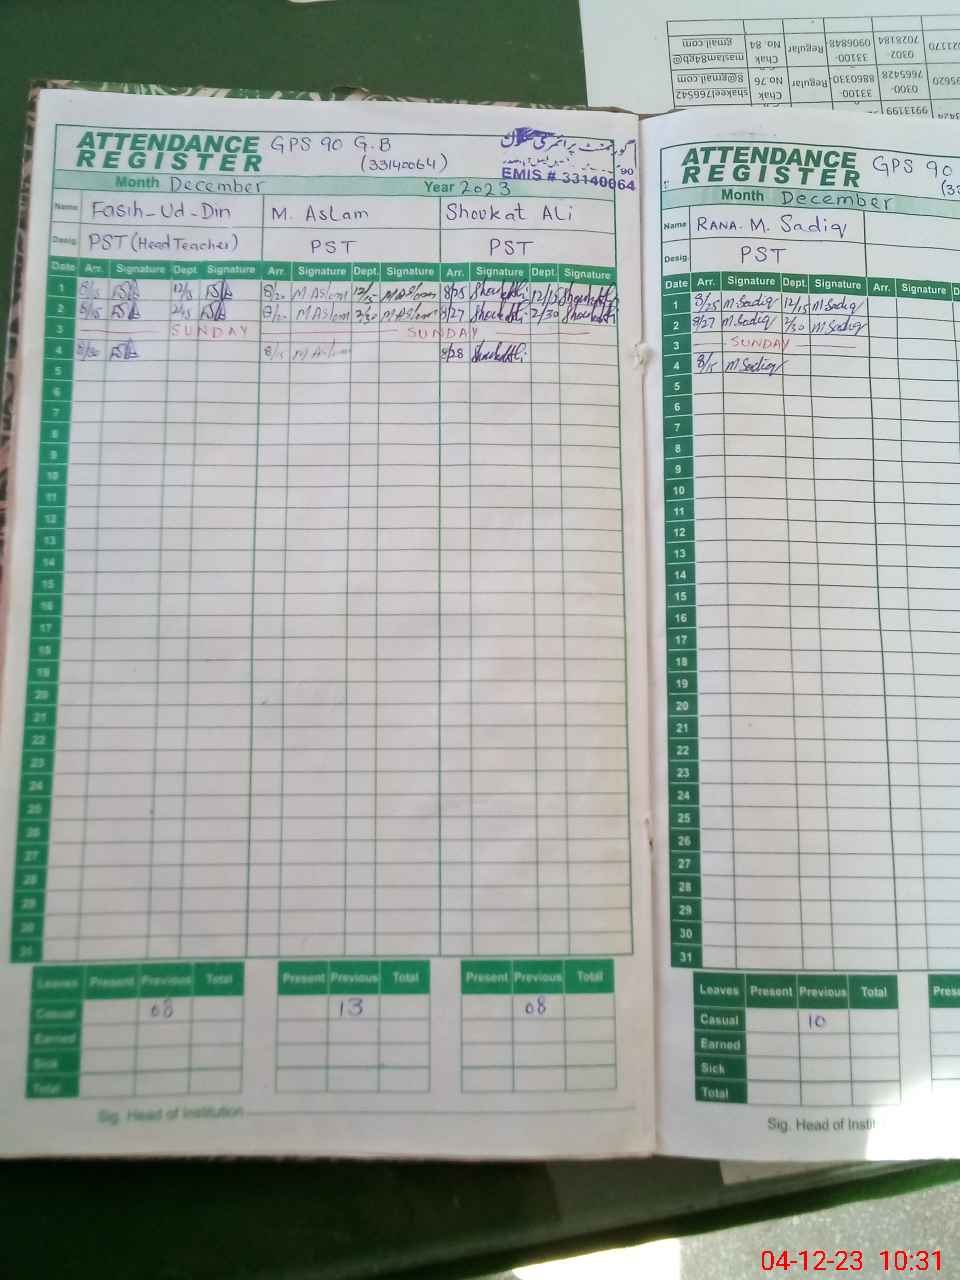 ATTENDANCE REGISTER GPS 90 G.B
(33140064)
گورنمنٹ پرائمری
EMIS # 33140064
Month December Year 2023
Name Fasih-Ud-Din M. Aslam Shoukat Ali
Desig. PST (Head Teacher) PST PST
Date Arr. Signature Dept. Signature Arr. Signature Dept. Signature Arr. Signature Dept. Signature
1 8/15 12/15 8/20 M Aslam 12/15 M Aslam 8/25 Shoukat Ali 12/15 Shoukat Ali
2 8/15 2/15 8/20 M Aslam 2/30 M Aslam 8/27 Shoukat Ali 2/30 Shoukat Ali
3 SUNDAY SUNDAY
4 8/30 8/15 M Aslam 8/28 Shoukat Ali
5
6
7
8
9
10
11
12
13
14
15
16
17
18
19
20
21
22
23
24
25
26
27
28
29
30
31
Leaves Present Previous Total Present Previous Total Present Previous Total
Casual 08 13 08
Earned
Sick
Total
Sig. Head of Institution
ATTENDANCE REGISTER GPS 90
Month December
Name RANA. M. Sadiq
Desig. PST
Date Arr. Signature Dept. Signature Arr. Signature
1 8/25 M Sadiq 12/15 M Sadiq
2 8/27 M Sadiq 2/30 M Sadiq
3 SUNDAY
4 8/15 M Sadiq
5
6
7
8
9
10
11
12
13
14
15
16
17
18
19
20
21
22
23
24
25
26
27
28
29
30
31
Leaves Present Previous Total
Casual 10
Earned
Sick
Total
Sig. Head of Instit
maslam84gb@gmail.com Chak No.84 Regular 33100-0906848 0302-7028184
shakeel7665428@gmail.com Chak No.76 Regular 33100-8860330 0300-7665428
04-12-23 10:31